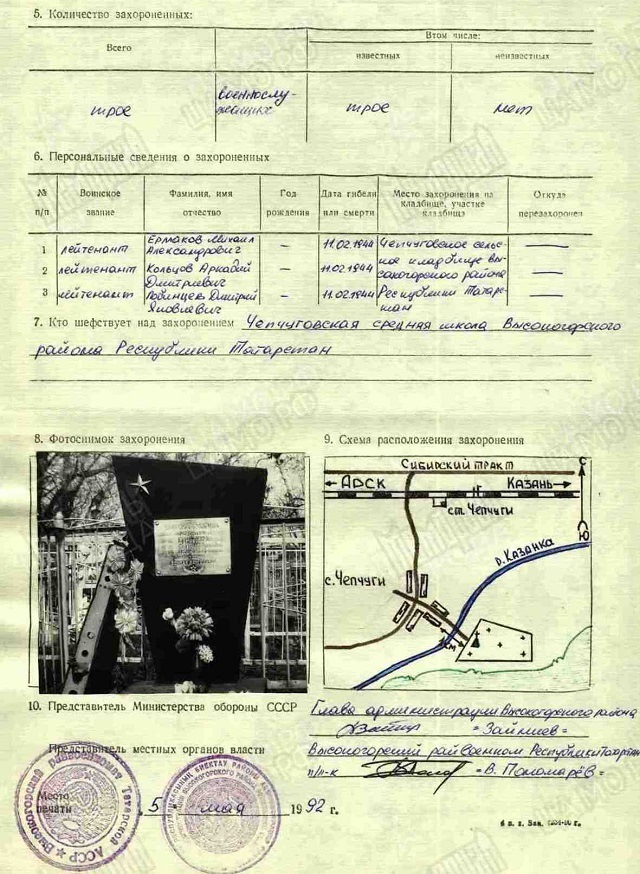 5. Количество захороненных:
Всего
Втом числе:
известных
неизвестных
трое
военнослу-
жащих
трое
нет
6. Персональные сведения о захороненных
№ п/п
Воинское звание
Фамилия, имя отчество
Год рождения
Дата гибели или смерти
Место захоронения на кладбище, участке кладбища
Откуда перезахоронен
1 лейтенант Ермаков Михаил Александрович – 11.02.1944 Чепчуговское сельс-
2 лейтенант Кольцов Аркадий Дмитриевич – 11.02.1944 кое кладбище Вы-
сокогорского района
3 лейтенант Дмитрий Яковлевич – 11.02.1944 Республики Татарс-
тан
7. Кто шефствует над захоронением Чепчуговская средняя школа Высокогорского
района Республики Татарстан
8. Фотоснимок захоронения
9. Схема расположения захоронения
Сибирский тракт
Арск
Казань
ст. Чепчуги
С
Ю
р. Казанка
с. Чепчуги
10. Представитель Министерства обороны СССР
Глава администрации Высокогорского района
=Зайниев=
Представитель местных органов власти
Высокогорский райвоенком Республики Татарстан
п/п-к =В. Пономарёв=
Место печати
Высокогорский райвоенкомат Татарской АССР
„5" мая 1992 г.